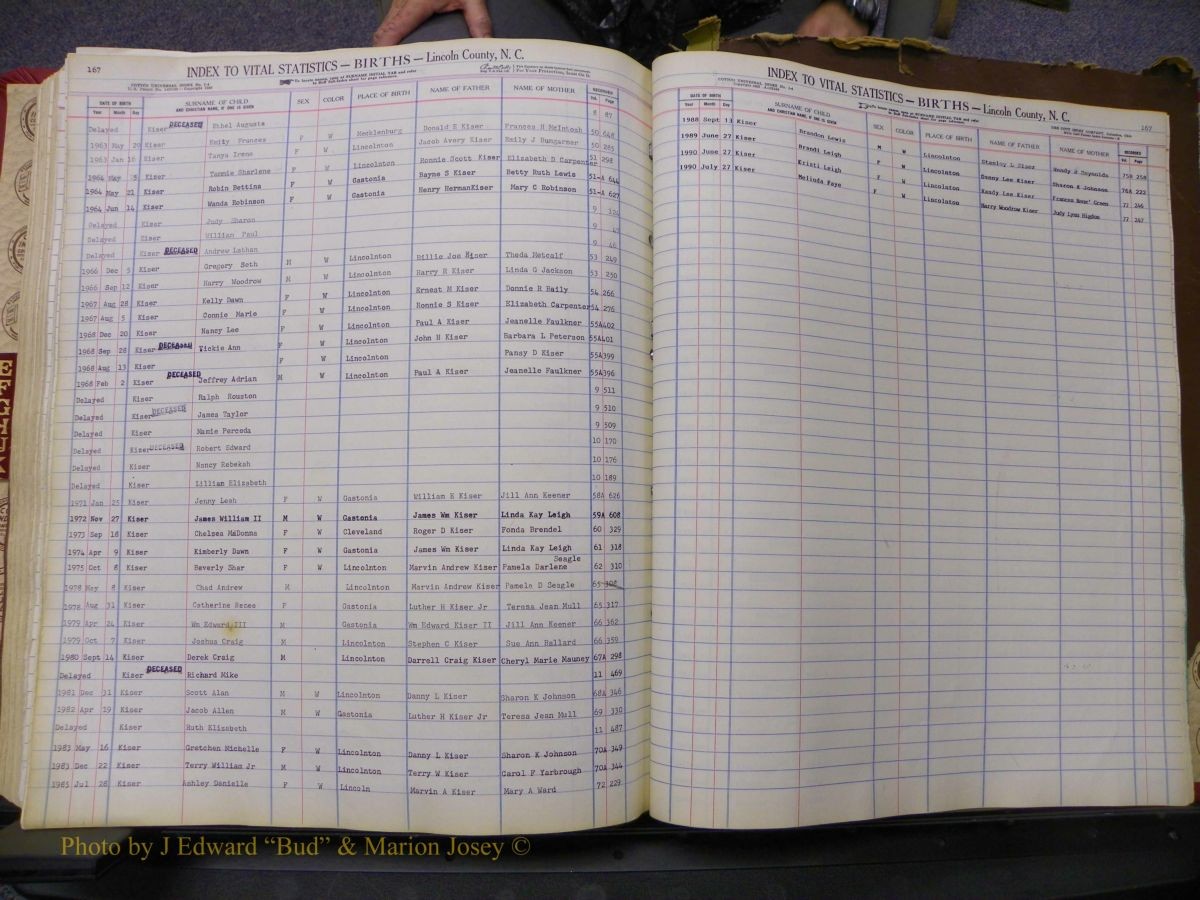 167
INDEX TO VITAL STATISTICS — BIRTHS — Lincoln County, N. C.
DATE OF BIRTH SURNAME OF CHILD SEX COLOR PLACE OF BIRTH NAME OF FATHER NAME OF MOTHER RECORDED
Year Month Day AND CHRISTIAN NAME, IF ONE IS GIVEN Vol. Page
Delayed Kiser DECEASED Ethel Augusta 8 87
1963 May 20 Kiser Emily Frances F W Mecklenburg Donald E Kiser Frances H McIntosh 50 648
1963 Jan 16 Kiser Tanya Irene F W Lincolnton Jacob Avery Kiser Emily J Bumgarner 50 265
1964 May 5 Kiser Tammie Sharlene F W Lincolnton Ronnie Scott Kiser Elizabeth D Carpenter 51 298
1964 May 21 Kiser Robin Bettina F W Gastonia Hayne S Kiser Betty Ruth Lewis 51-A 644
1964 Jun 14 Kiser Wanda Robinson F W Gastonia Henry HermanKiser Mary C Robinson 51-A 627
Delayed Kiser Judy Sharon 9
Delayed Kiser William Paul 9
Delayed Kiser DECEASED Andrew Lathan 9 46
1966 Dec 5 Kiser Gregory Seth M W Lincolnton Billie Joe Kiser Theda Metcalf 53 249
1966 Sep 12 Kiser Harry Woodrow M W Lincolnton Harry R Kiser Linda G Jackson 53 250
1967 Aug 28 Kiser Kelly Dawn F W Lincolnton Ernest M Kiser Donnie R Haily 54 266
1967 Aug 5 Kiser Connie Marie F W Lincolnton Ronnie S Kiser Elizabeth Carpenter 54 276
1968 Dec 20 Kiser Nancy Lee F W Lincolnton Paul A Kiser Jeanelle Faulkner 55A 402
1968 Sep 26 Kiser DECEASED Vickie Ann F W Lincolnton John H Kiser Barbara L Peterson 55A 401
1968 Aug 13 Kiser F W Lincolnton Pansy D Kiser 55A 399
1968 Feb 2 Kiser DECEASED Jeffrey Adrian M W Lincolnton Paul A Kiser Jeanelle Faulkner 55A 396
Delayed Kiser Ralph Houston 9 511
Delayed Kiser DECEASED James Taylor 9 510
Delayed Kiser Mamie Percoda 9 509
Delayed Kiser DECEASED Robert Edward 10 170
Delayed Kiser Nancy Rebekah 10 176
Delayed Kiser Lilliam Elizabeth 10 189
1971 Jan 25 Kiser Jenny Leah F W Gastonia William E Kiser Jill Ann Keener 58A 626
1972 Nov 27 Kiser James William II M W Gastonia James Wm Kiser Linda Kay Leigh 59A 608
1973 Sep 18 Kiser Chelsea MaDonna F W Cleveland Roger D Kiser Fonda Brendel 60 329
1974 Apr 9 Kiser Kimberly Dawn F W Gastonia James Wm Kiser Linda Kay Leigh 61 318
1975 Oct 8 Kiser Beverly Shar F W Lincolnton Marvin Andrew Kiser Pamela Darlene Seagle 62 310
1978 May 8 Kiser Chad Andrew M Lincolnton Marvin Andrew Kiser Pamela D Seagle 65 308
1978 Aug 31 Kiser Catherine Renee F Gastonia Luther H Kiser Jr Teresa Jean Mull 65 317
1979 Apr 24 Kiser Wm Edward III M Gastonia Wm Edward Kiser II Jill Ann Keener 66 362
1979 Oct 7 Kiser Joshua Craig M Lincolnton Stephen C Kiser Sue Ann Ballard 66 359
1980 Sept 14 Kiser Derek Craig M Lincolnton Darrell Craig Kiser Cheryl Marie Mauney 67A 298
Delayed Kiser DECEASED Richard Mike 11 469
1981 Dec 31 Kiser Scott Alan M W Lincolnton Danny L Kiser Sharon K Johnson 68A 346
1982 Apr 19 Kiser Jacob Allen M W Gastonia Luther H Kiser Jr Teresa Jean Mull 69 330
Delayed Kiser Ruth Elizabeth 11 487
1983 May 16 Kiser Gretchen Michelle F W Lincolnton Danny L Kiser Sharon K Johnson 70A 349
1983 Dec 22 Kiser Terry William Jr M W Lincolnton Terry W Kiser Carol F Yarbrough 70A 344
1985 Jul 28 Kiser Ashley Danielle F W Lincoln Marvin A Kiser Mary A Ward 72 229
INDEX TO VITAL STATISTICS — BIRTHS — Lincoln County, N. C.
167
DATE OF BIRTH SURNAME OF CHILD SEX COLOR PLACE OF BIRTH NAME OF FATHER NAME OF MOTHER RECORDED
Year Month Day AND CHRISTIAN NAME, IF ONE IS GIVEN Vol. Page
1988 Sept 13 Kiser Brandon Lewis M W Lincolnton Stanley L Kiser Wendy S Reynolds 75B 258
1989 June 27 Kiser Brandi Leigh F W Lincolnton Danny Lee Kiser Sharon K Johnson 76A 222
1990 June 27 Kiser Kristi Leigh F W Lincolnton Kenndy Lee Kiser Frances Green 77 246
1990 July 27 Kiser Melinda Faye F W Lincolnton Harry Woodrow Kiser Judy Lynn Higdon 77 247
E
F
G
H
J
K
Photo by J Edward “Bud” & Marion Josey ©